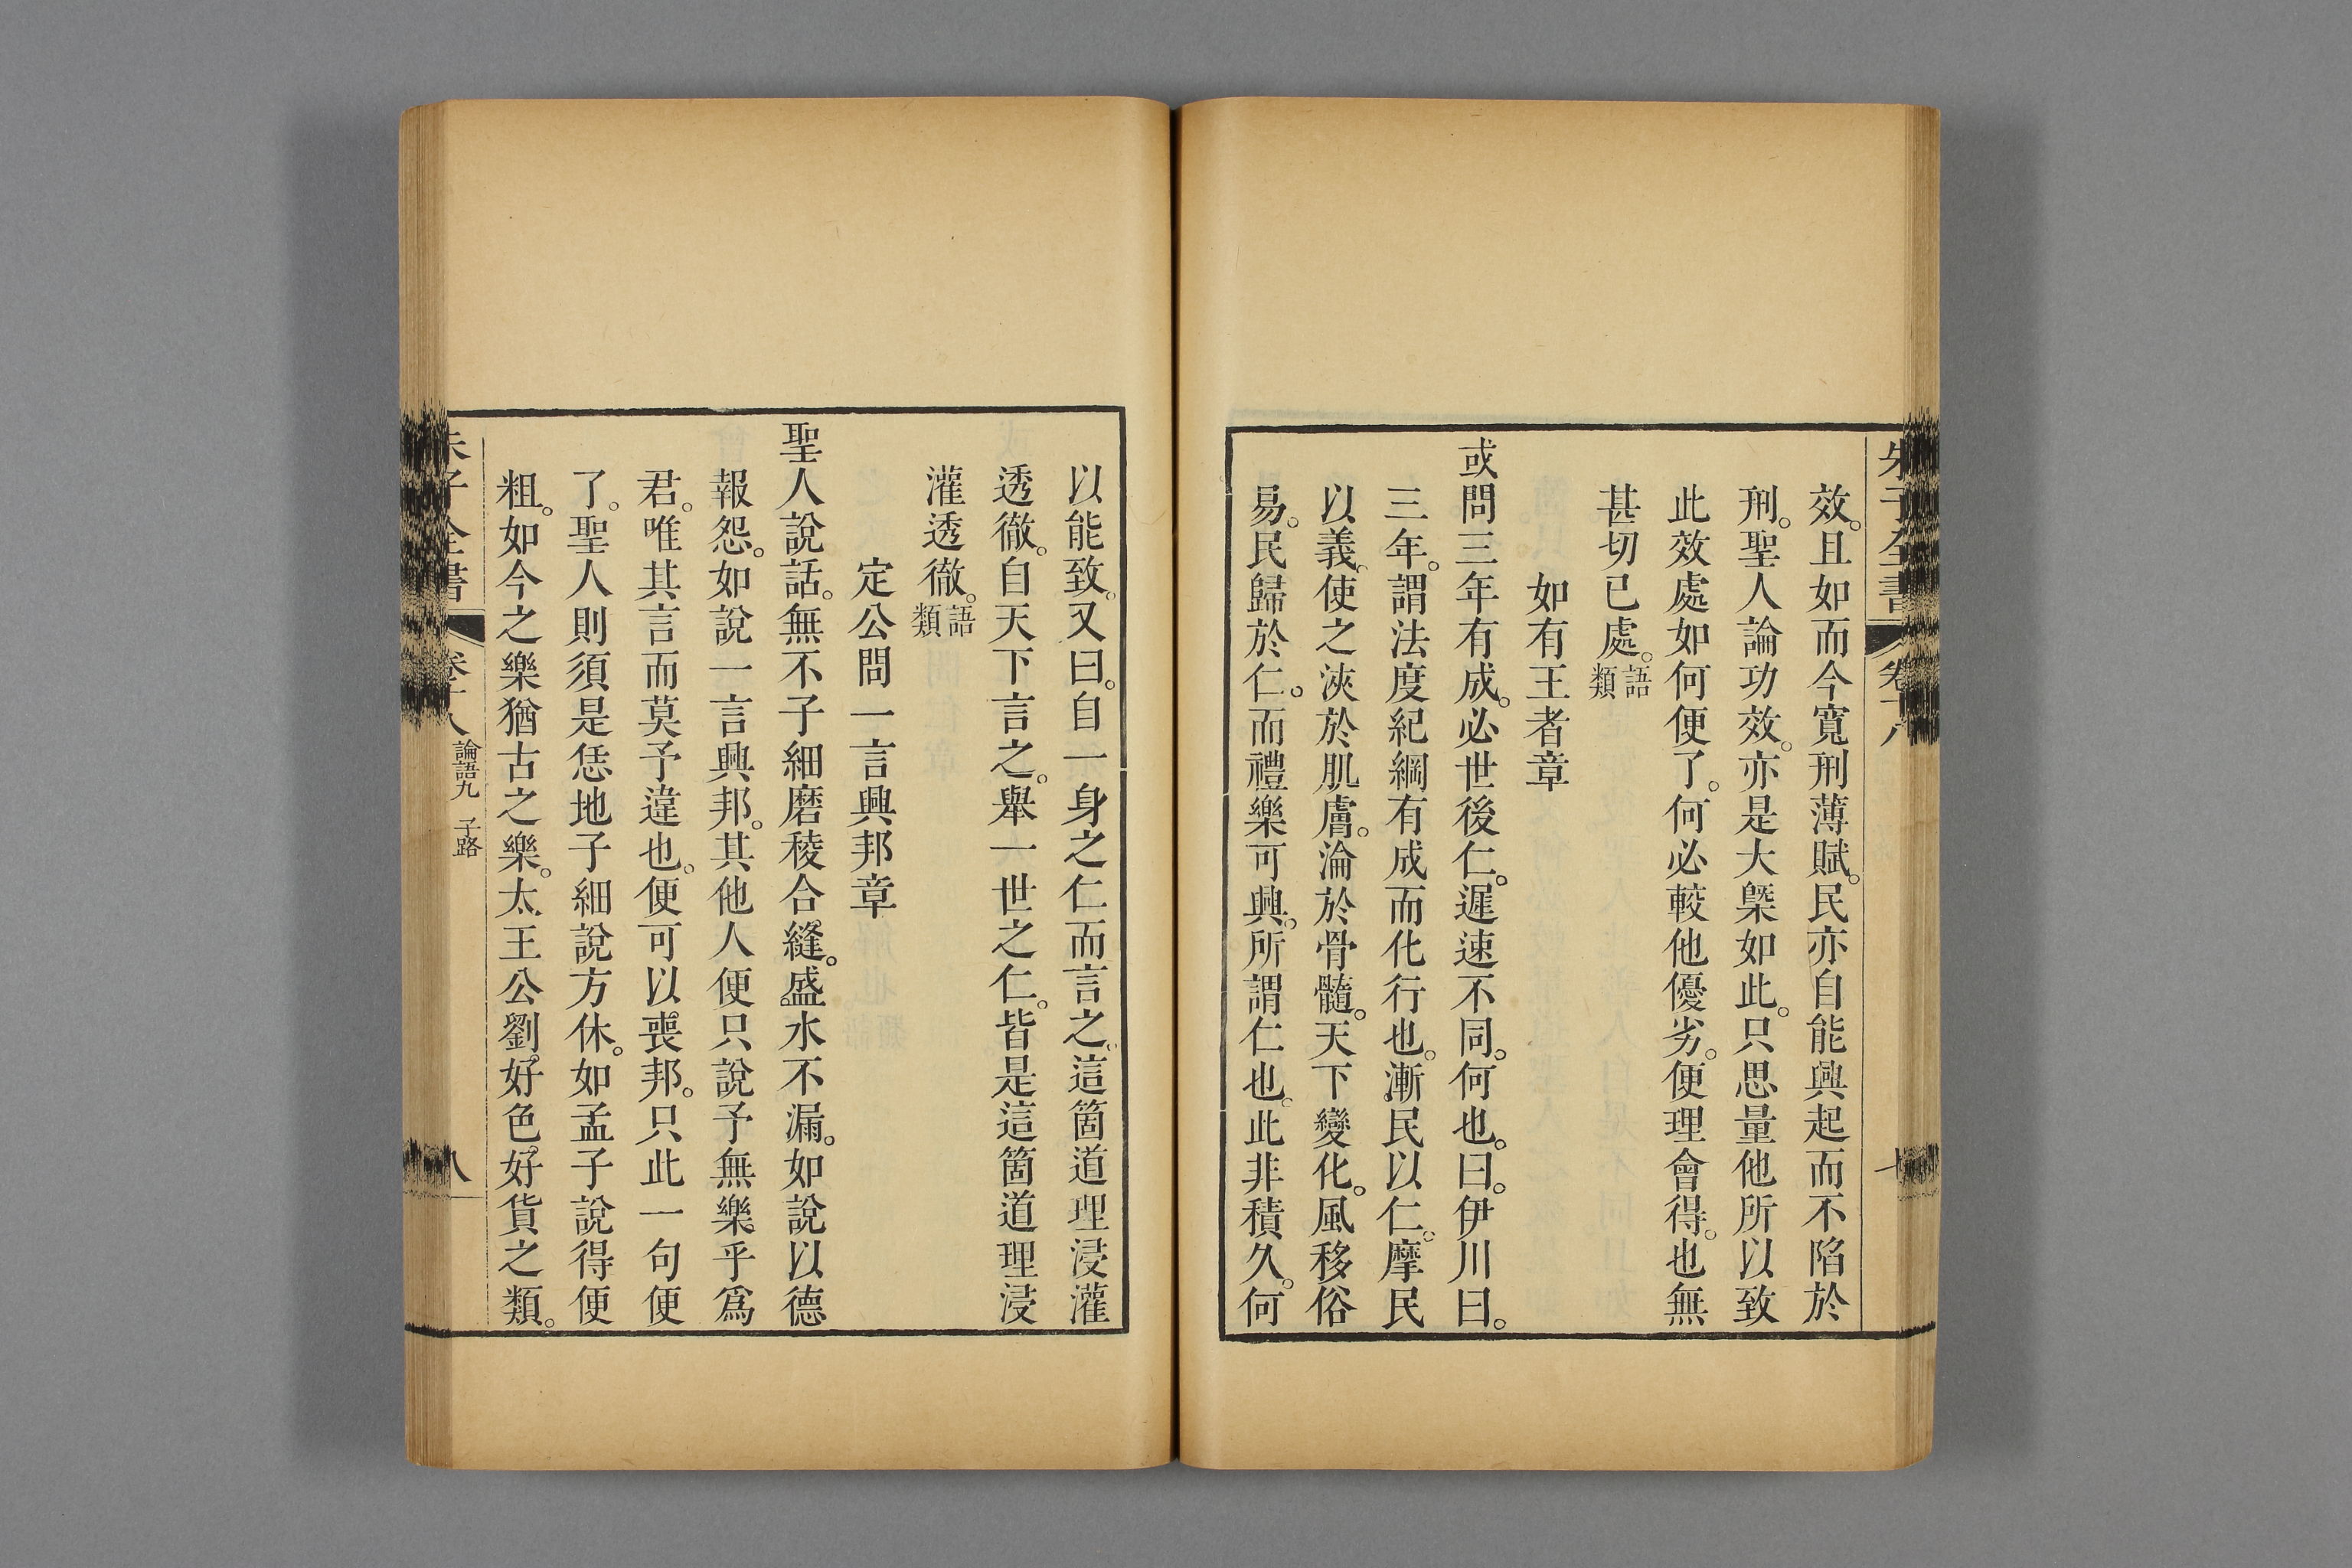 朱子全書 卷十八
效。且如而今寬刑薄賦。民亦自能興起而不陷於
刑。聖人論功效。亦是大槩如此。只思量他所以致
此效處如何便了。何必較他優劣。便理會得。也無
甚切已處。語類
如有王者章
或問三年有成。必世後仁。遲速不同。何也。曰。伊川曰。
三年。謂法度紀綱有成而化行也。漸民以仁。摩民
以義。使之浹於肌膚。淪於骨髓。天下變化。風移俗
易。民歸於仁。而禮樂可興。所謂仁也。此非積久。何
以能致。又曰。自一身之仁而言之。這箇道理浸灌
透徹。自天下言之。舉一世之仁。皆是這箇道理浸
灌透徹。語類
定公問一言興邦章
聖人說話。無不子細磨稜合縫。盛水不漏。如說以德
報怨。如說一言興邦。其他人便只說予無樂乎爲
君。唯其言而莫予違也。便可以喪邦。只此一句便
了。聖人則須是恁地子細說方休。如孟子說得便
粗。如今之樂猶古之樂。太王公劉。好色。好貨之類。
朱子全書 卷十八 論語九 子路 八